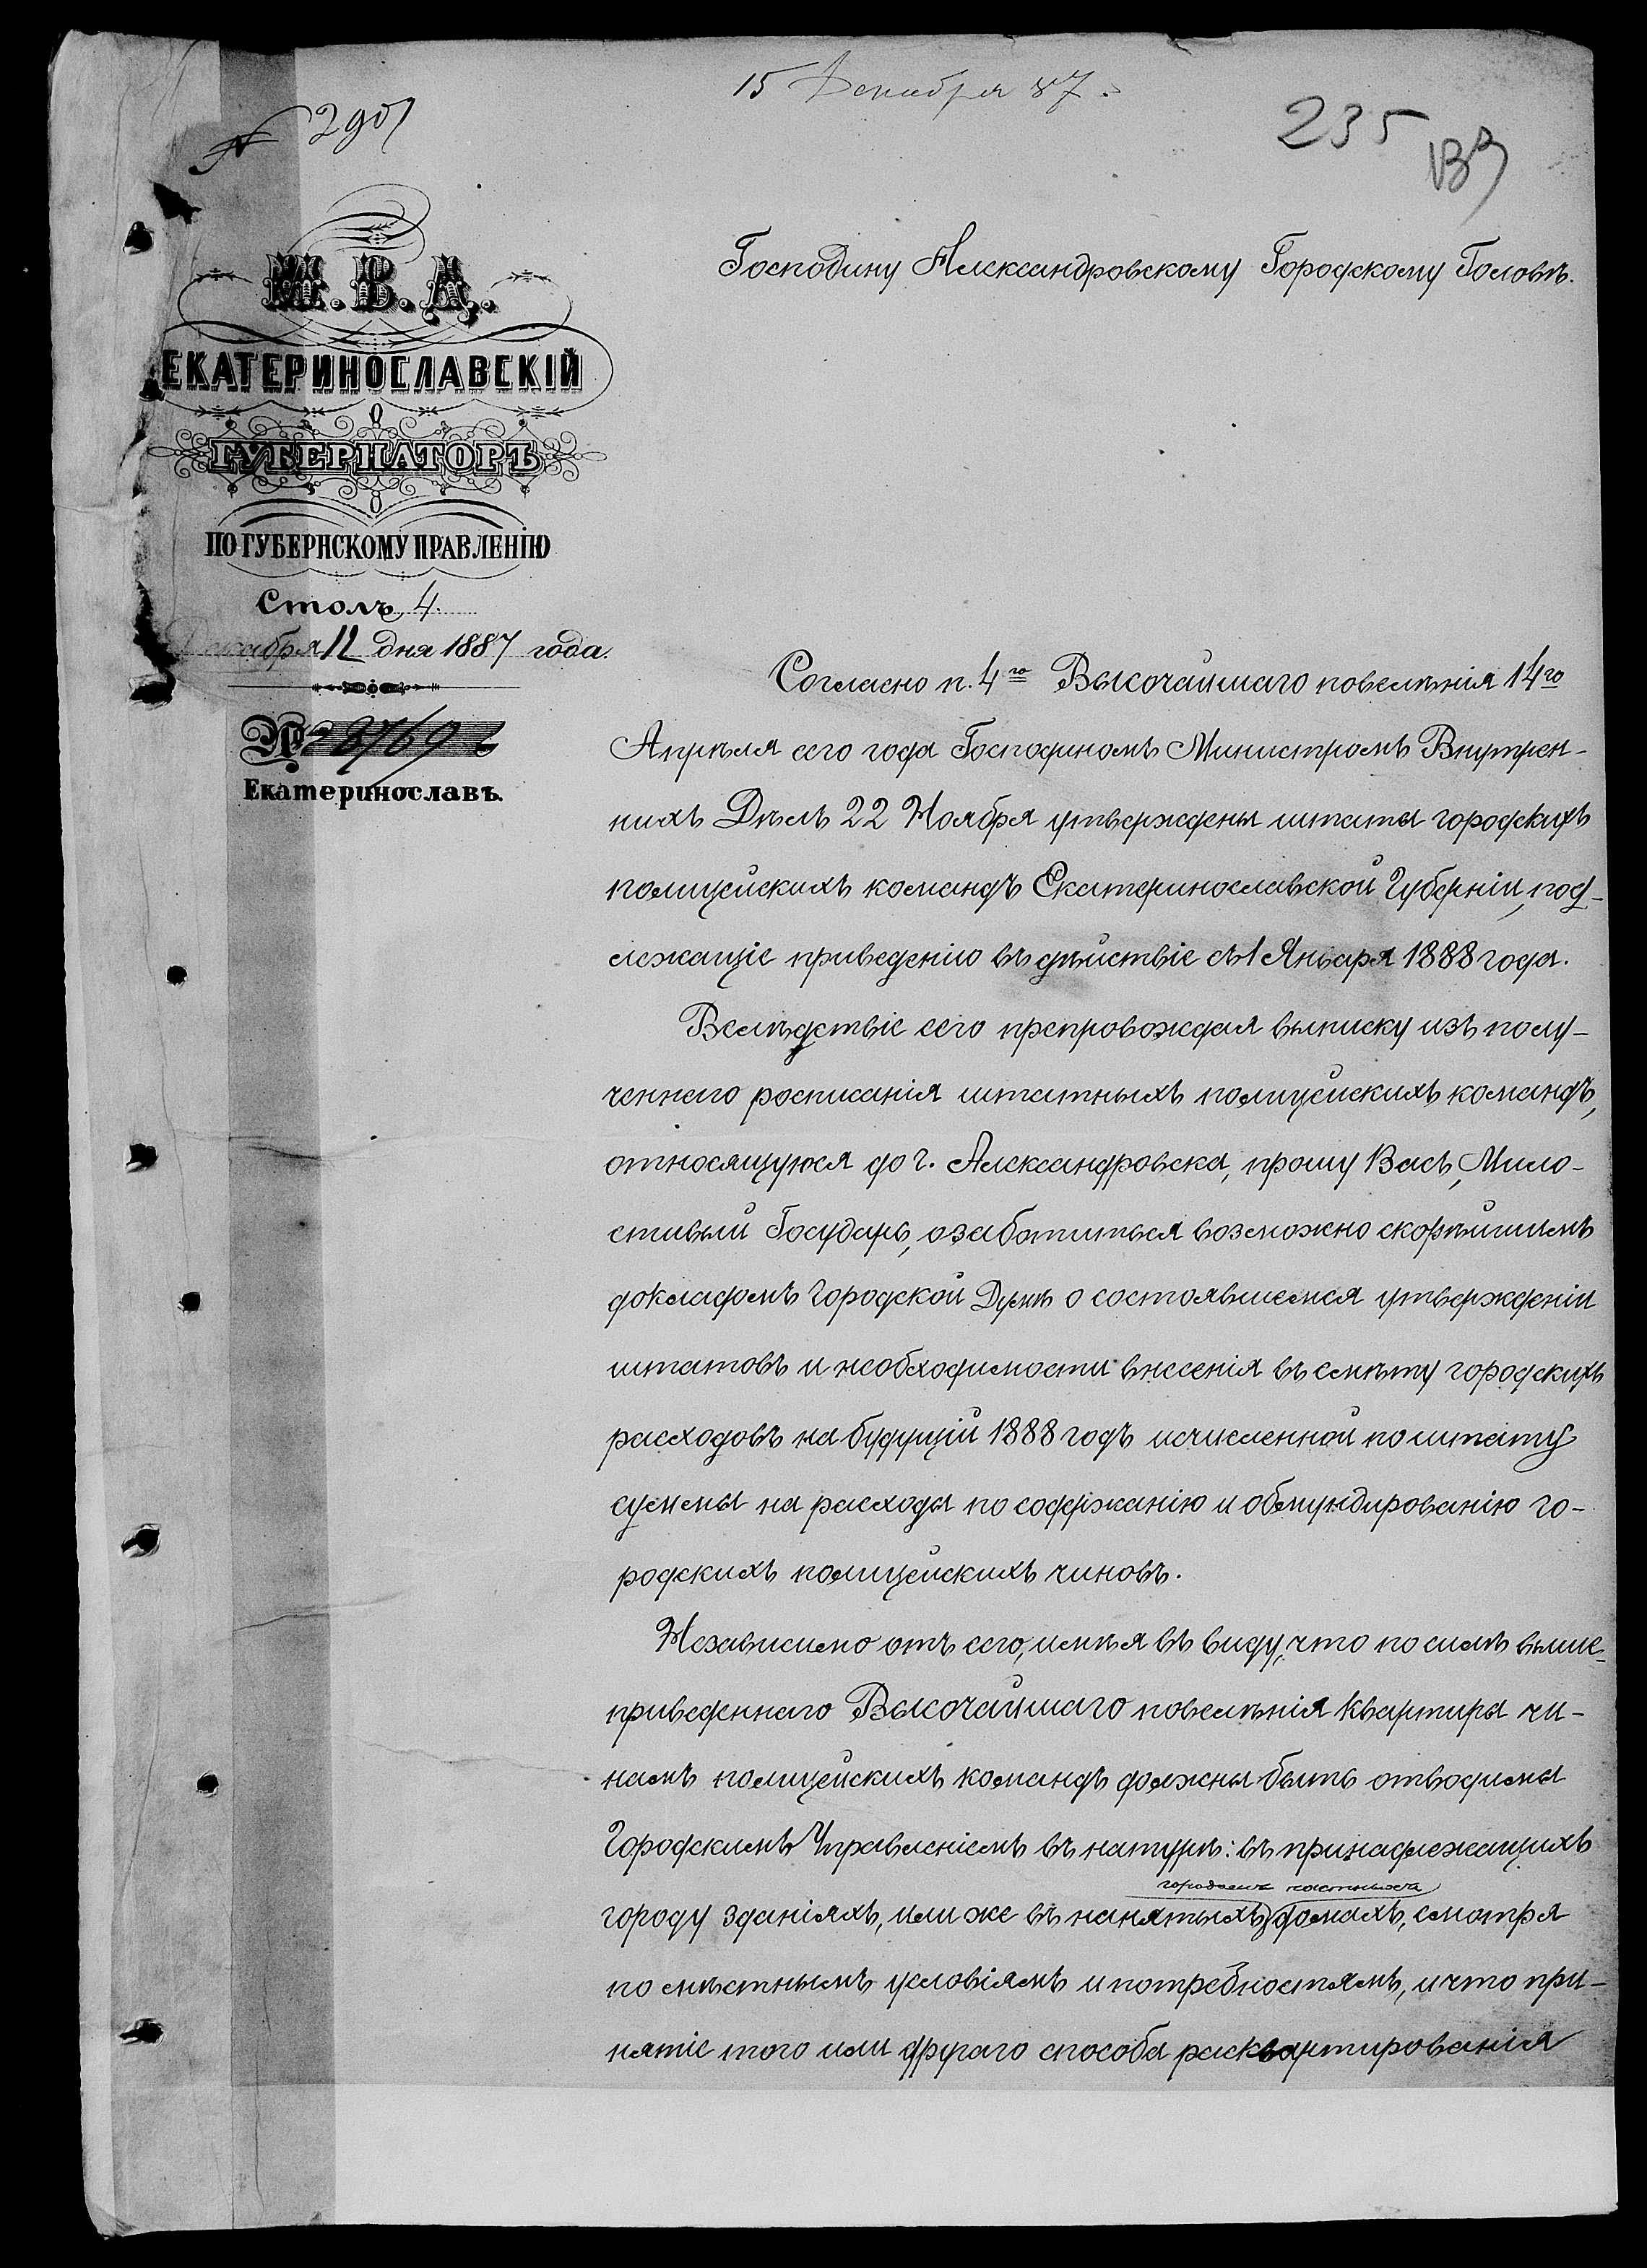 15 Декабря 87 г.
№ 2901
235
М. В. Д.
ЕКАТЕРИНОСЛАВСКІЙ
ГУБЕРНАТОРЪ
ПО ГУБЕРНСКОМУ ПРАВЛЕНІЮ
Столъ 4.
Декабря 11 дня 1887 года.
№ 3769
Екатеринославъ.
Господину Александровскому Городскому Головѣ.
Согласно п. 4го Высочайшаго повелѣнія 14го
Апрѣля сего года Господиномъ Министромъ Внутрен-
нихъ Дѣлъ 22 Ноября утверждены штаты городскихъ
полицейскихъ командъ Екатеринославской Губерніи, под-
лежащіе приведенію въ дѣйствіе съ 1 Января 1888 года.
Вслѣдствіе сего препровождая выписку изъ полу-
ченнаго росписанія штатныхъ полицейскихъ командъ,
относящуюся до г. Александровска, прошу Васъ, Мило-
стивый Государь, озаботиться возможно скорѣйшимъ
докладомъ Городской Думѣ о состоявшемся утвержденіи
штатовъ и необходимости внесенія въ смѣту городскихъ
расходовъ на будущій 1888 годъ исчисленной по штату
суммы на расходы по содержанію и обмундированію го-
родскихъ полицейскихъ чиновъ.
Независимо отъ сего, имѣя въ виду, что по силѣ выше-
приведеннаго Высочайшаго повелѣнія квартиры чи-
намъ полицейскихъ командъ должны быть отводимы
Городскимъ Управленіемъ въ натурѣ: въ принадлежащихъ
городомъ частныхъ
городу зданіяхъ, или же въ нанятыхъ домахъ, смотря
по мѣстнымъ условіямъ и потребностямъ, и что при-
нятіе того или другаго способа расквартированія